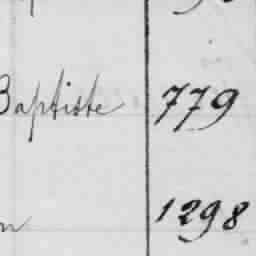 Baptiste 779
1298